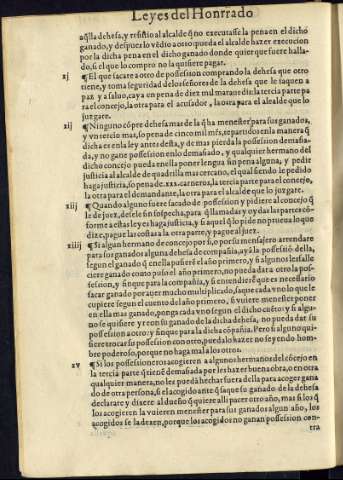 Leyes del Honrrado
aq̃lla dehesa, y resistio al alcalde q̃ no executasse la pena en el dicho
ganado, y despues lo vẽdio a otro pueda el alcalde hazer execucion
por la dicha pena en el dicho ganado donde quier que fuere halla-
do, si el que lo compro no la quisiere pagar.
xj ¶ El que sacare a otro de possession comprando la dehesa que otro
tiene, y toma seguridad de los señores de la dehesa que le saquen a
paz y a saluo, caya en pena de diez mil marauedis la tercia parte pa
ra el concejo, la otra para el acusador, la otra para el alcalde que lo
juzgare.
xij ¶ Ninguno cõpre dehesa mas de la q̃ ha menester para sus ganados,
y vn tercio mas, so pena de cinco mil mrs, repartidos en la manera q̃
dicha es en la ley antes desta, y de mas pierda la possession demasia
da, y no gane possession en lo demasiado, y qualquier hermano del
dicho concejo pueda en ella poner lengua sin pena alguna, y pedir
justicia al alcalde de quadrilla mas cercano, el qual siendo le pedido
haga justicia, so pena de .xxx. carneros, la tercia parte para el concejo,
la otra para el demandante, la otra para el alcalde que lo juzgare.
xiij ¶ Quando alguno fuere sacado de possession y pidiere al concejo q̃
le de juez, desele sin sospecha, para q̃ llamadas y oydas las partes cõ
forme a estas leyes haga justicia, y si aquel q̃ lo pide no prueua lo que
dize, pague las costas a la otra parte, y pague al juez.
xiiij ¶ Si algun hermano de concejo por si, o por su mensajero arrendare
para sus ganados alguna dehesa de compañia, aya la possessiõ della,
segun el ganado q̃ en ella pusiere el año primero, y si algunos les falle
ciere ganado como puso el año primero, no pueda dar a otro la pos-
session, y finque para la compañia, y si entendiere q̃ es necessario
sacar ganado por auer mucho multiplicado, saque cada vno lo que le
cupiere segun el cuento del año primero, si vuiere menester poner
en ella mas ganado, ponga cada vno segun el dicho cuẽto: y si algu-
no se quisiere yr con su ganado de la dicha dehesa, no pueda dar su
possession a otro: y finque para la dicha cõpañia. Pero si alguno qui-
siere trocar su possession con otro, puedalo hazer no seyendo hom-
bre poderoso, porque no haga mal a los otros.
xv ¶ Si los possessioneros acogieren a algunos hermanos del cõcejo en
la tercia parte q̃ tienẽ demasiada por les hazer buena obra, o en otra
qualquier manera, no les puedã hechar fuera della para acoger gana
do de otra persona, si el acogido ante q̃ saque su ganado de la dehesa
declarare y dixere al dueño q̃ quiere alli pacer otro año, mas si los q̃
los acogieren la vuieren menester para sus ganados algun año, los
acogidos se la dexen, porque los acogidos no ganan possession con-
tra